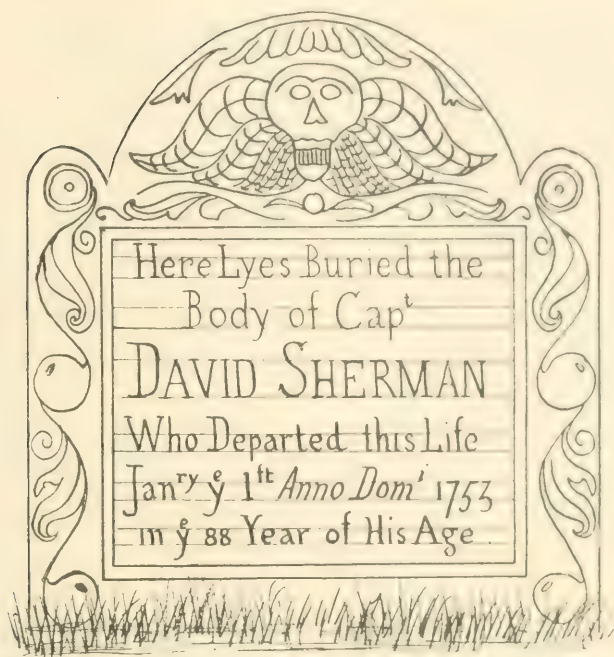 Here Lyes Buried the
Body of Capᵗ
DAVID SHERMAN
Who Departed this Life
Janʳʸ yᵉ 1ſt Anno Domⁱ 1753
in yᵉ 88 Year of His Age.